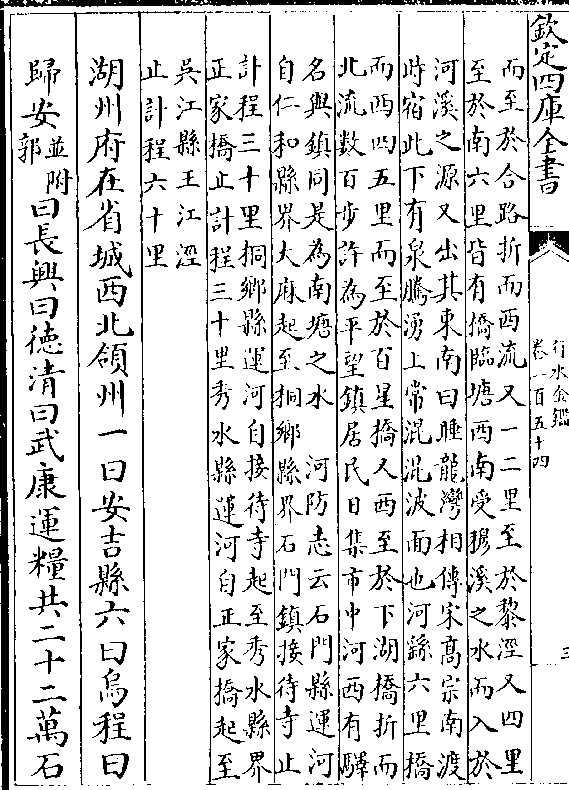 欽定四庫全書
行水金鑑
卷一百五十四
三
而至於合路折而西流又一二里至於黎涇又四里
至於南六里皆有橋臨塘西南受穆溪之水而入於
河溪之源又出其東南曰睡龍灣相傳宋高宗南渡
時宿此下有泉騰湧上常混混波面也河繇六里橋
而西四五里而至於百星橋又西至於下湖橋折而
北流數百步許為平望鎮居民日集市中河西有驛
名與鎮同是為南塘之水 河防志云石門縣運河
自仁和縣界大麻起至桐鄉縣界石門鎮接待寺止
計程三十里桐鄉縣運河自接待寺起至秀水縣界
正家橋止計程三十里秀水縣運河自正家橋起至
吳江縣王江涇
止計程六十里
湖州府在省城西北領州一曰安吉縣六曰烏程曰
歸安並附郭曰長興曰德清曰武康運糧共二十二萬石